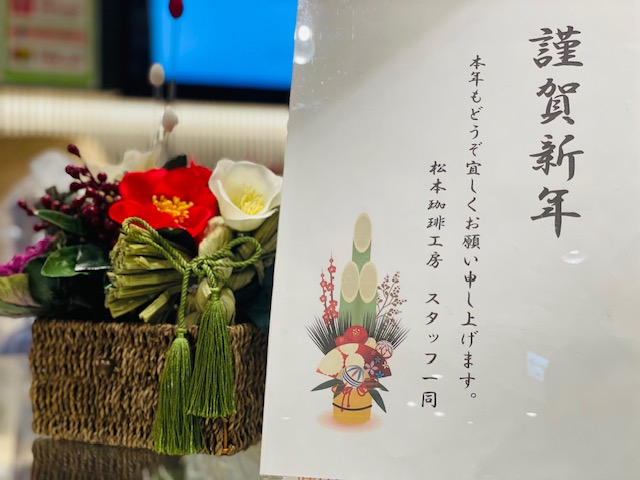 謹賀新年
本年もどうぞ宜しくお願い申し上げます。
松本珈琲工房　スタッフ一同